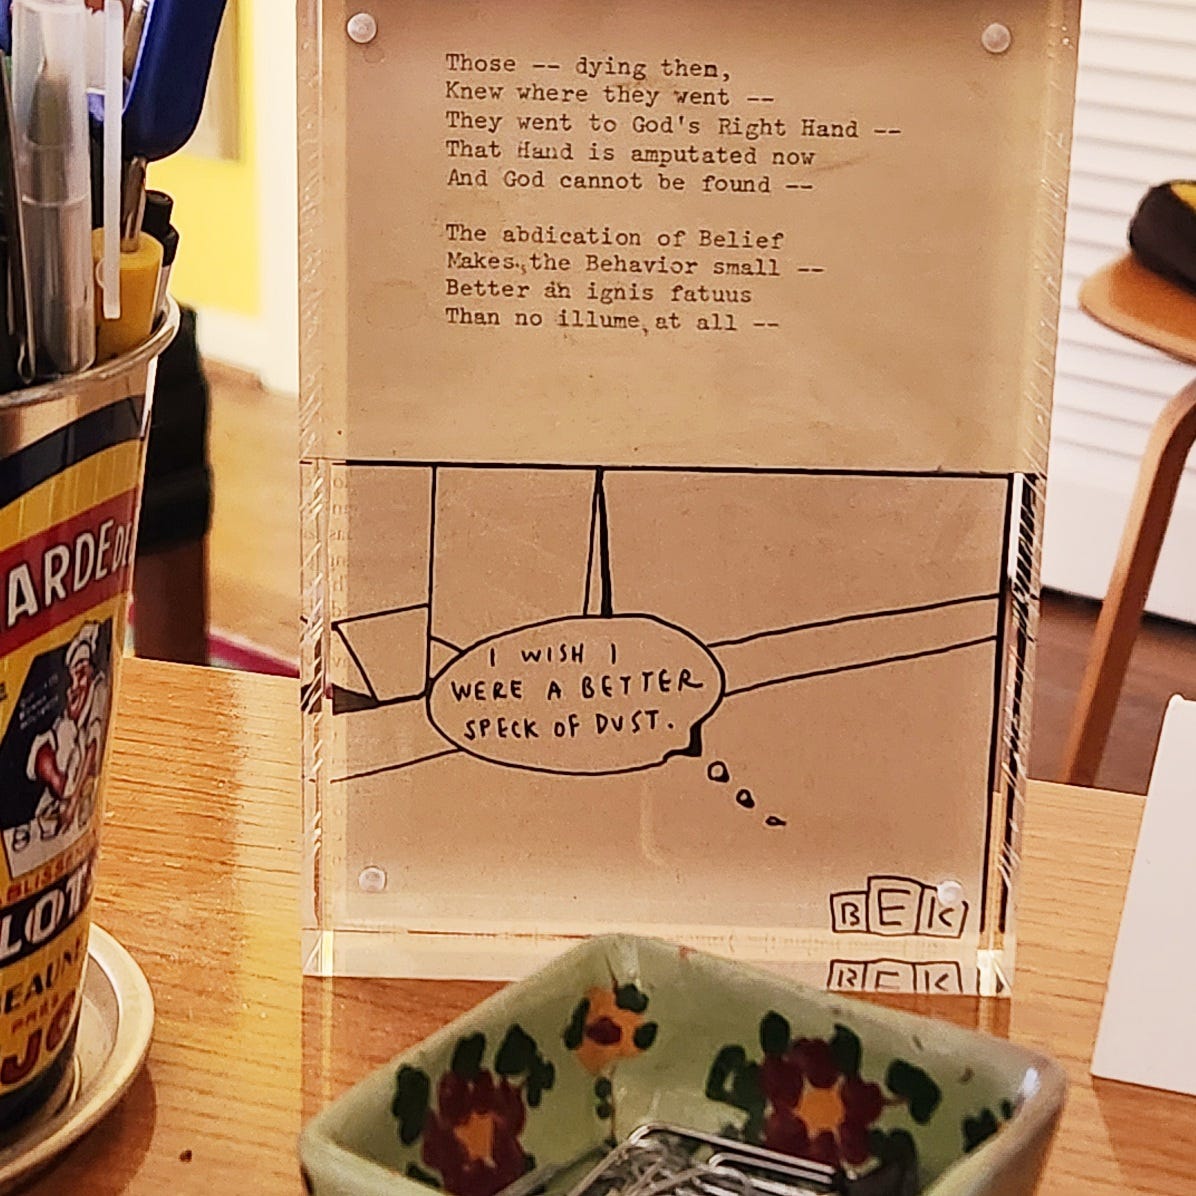 Those -- dying then,
Knew where they went --
They went to God's Right Hand --
That Hand is amputated now
And God cannot be found --
The abdication of Belief
Makes the Behavior small --
Better an ignis fatuus
Than no illume at all --
I WISH I
WERE A BETTER
SPECK OF DUST.
BEK
ARDE DE
LOT
BEAUNE